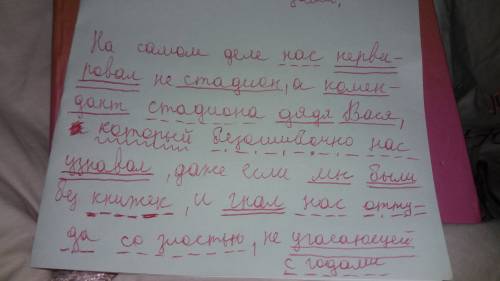 На самом деле нас нерви-
ровал не стадион, а комен-
дант стадиона дядя Вася,
который безошибочно нас
узнавал, даже если мы были
без книжек, и гнал нас отту-
да со злостью, не угасающей
с годами